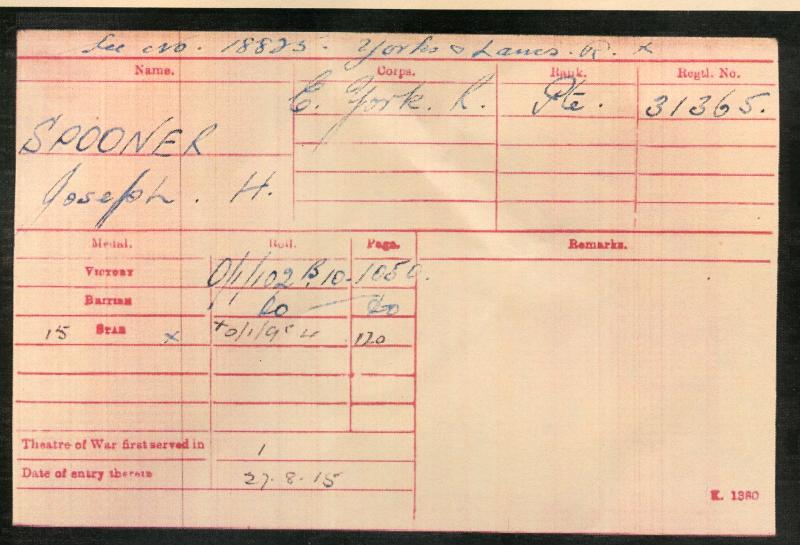 See No. 18825. York & Lancs. R. x
Name. Corps. Rank. Regtl. No.
E. York. R. Pte. 31365.
SPOONER
Joseph. H.
Medal. Roll. Page. Remarks.
VICTORY 0/1/102 B.10. 1050.
BRITISH do do
15 STAR x + 0/1/9 120
Theatre of War first served in 1
Date of entry therein 27.8.15
K. 1380